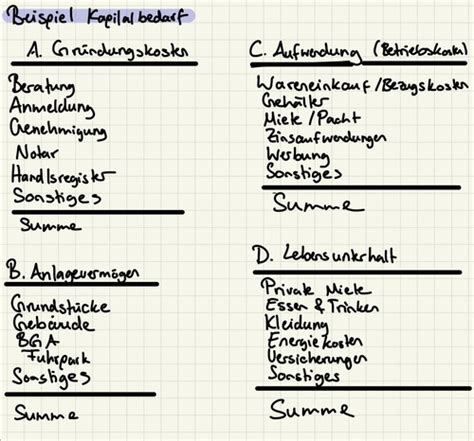 Beispiel Kapitalbedarf
A. Gründungskosten
Beratung
Anmeldung
Genehmigung
Notar
Handlsregister
Sonstiges
Summe
B. Anlagevermögen
Grundstücke
Gebäude
BGA
Fuhrpark
Sonstiges
Summe
C. Aufwendung (Betriebskosten)
Wareneinkauf/Bezugskosten
Gehälter
Miete/Pacht
Zinsaufwendungen
Werbung
Sonstiges
Summe
D. Lebensunterhalt
Private Miete
Essen & Trinken
Kleidung
Energiekosten
Versicherungen
Sonstiges
Summe